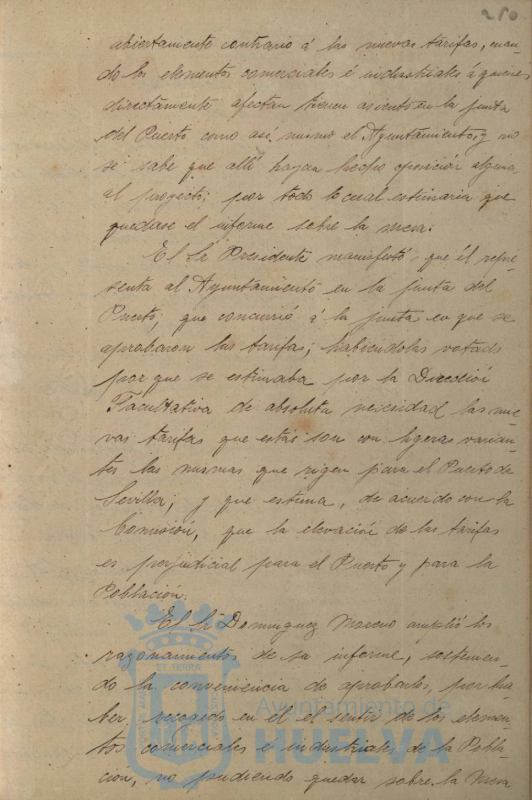 280
abiertamente contrario á las nuevas tarifas, cuan-
do los elementos comerciales é industriales á quienes
directamente afectan tienen asiento en la junta
del Puerto como asi mismo el Ayuntamiento, y no
se sabe que alli hayan hecho oposición alguna
al proyecto; por todo lo cual estimaria que
quedase el informe sobre la mesa.
El Sr Presidente manifestó: que él repre-
senta al Ayuntamiento en la junta del
Puerto; que concurrió á la junta en que se
aprobaron las tarifas; habiendolas votado
por que se estimaba por la Dirección
Facultativa de absoluta necesidad las nue-
vas tarifas que estas son con ligeras varian-
tes las mismas que rigen para el Puerto de
Sevilla; y que estima, de acuerdo con la
Comisión, que la elevación de las tarifas
es perjudicial para el Puerto y para la
Población.
El Sr Dominguez Moreno amplió los
razonamientos de su informe, sostenien-
do la conveniencia de aprobarlo, por ha-
ber recogido en el el sentir de los elemen-
tos comerciales é industriales de la Pobla-
cion, no pudiendo quedar sobre la Mesa
Ayuntamiento de
HUELVA